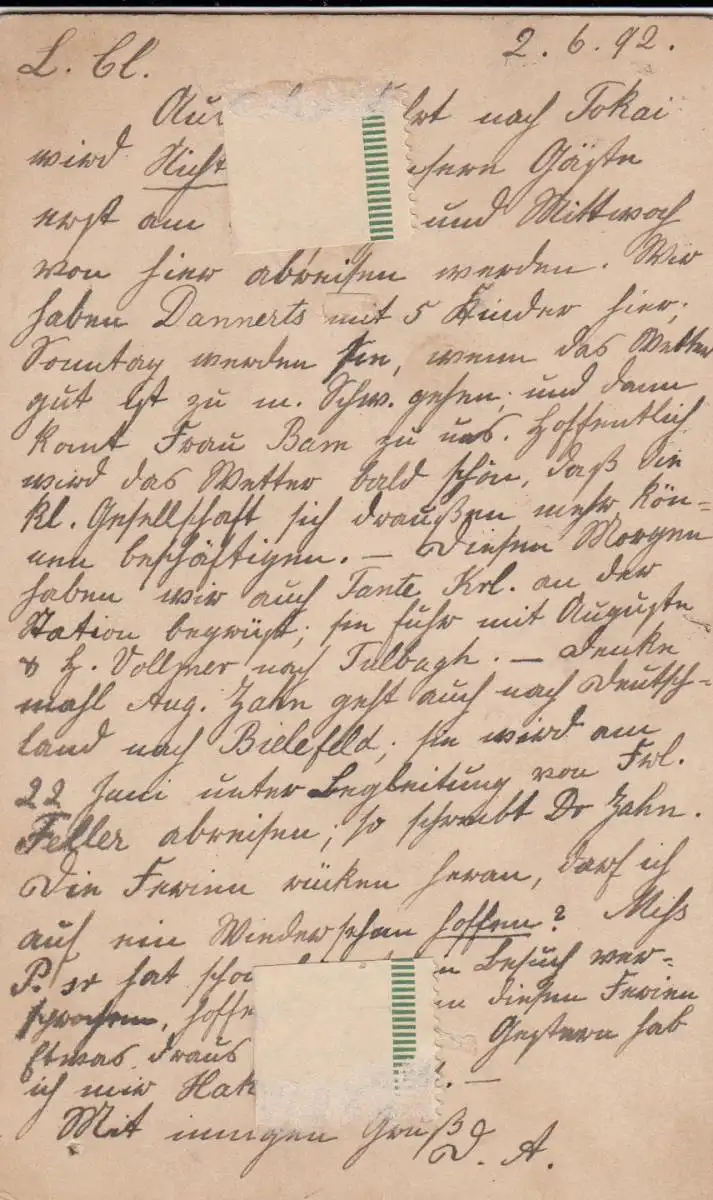 2. 6. 92.
L. Cl.
Aus hrt nach Tokai
wird Nicht nsere Gäste
erst am und Mittwoch
von hier abreisen werden. Wir
haben Dannerts mit 5 Kinder hier;
Sonntag werden sie, wenn das Wetter
gut ist zu m. Schw. gehen; und dann
komt Frau Bam zu uns. Hoffentlich
wird das Wetter bald schön, daß die
kl. Gesellschaft sich draußen mehr kön-
nen beschäftigen. — Diesen Morgen
haben wir auch Tante Krl. an der
Station begrüßt; sie fuhr mit Auguste
& H. Vollmer nach Tulbagh. — Denke
mahl Aug. Zahn geht auch nach Deutsch-
land nach Bielefeld; sie wird am
22 Juni unter Begleitung von Frl.
Feller abreisen; so schreibt Dr Zahn.
Die Ferien rücken heran, darf ich
auf ein Wiedersehen hoffen? Miss
P. hat scho n Besuch ver-
sprochen, hoffe n diesen Ferien
Etwas draus Gestern hab
ich mir Hak
Mit innigen Gruß
D. A.